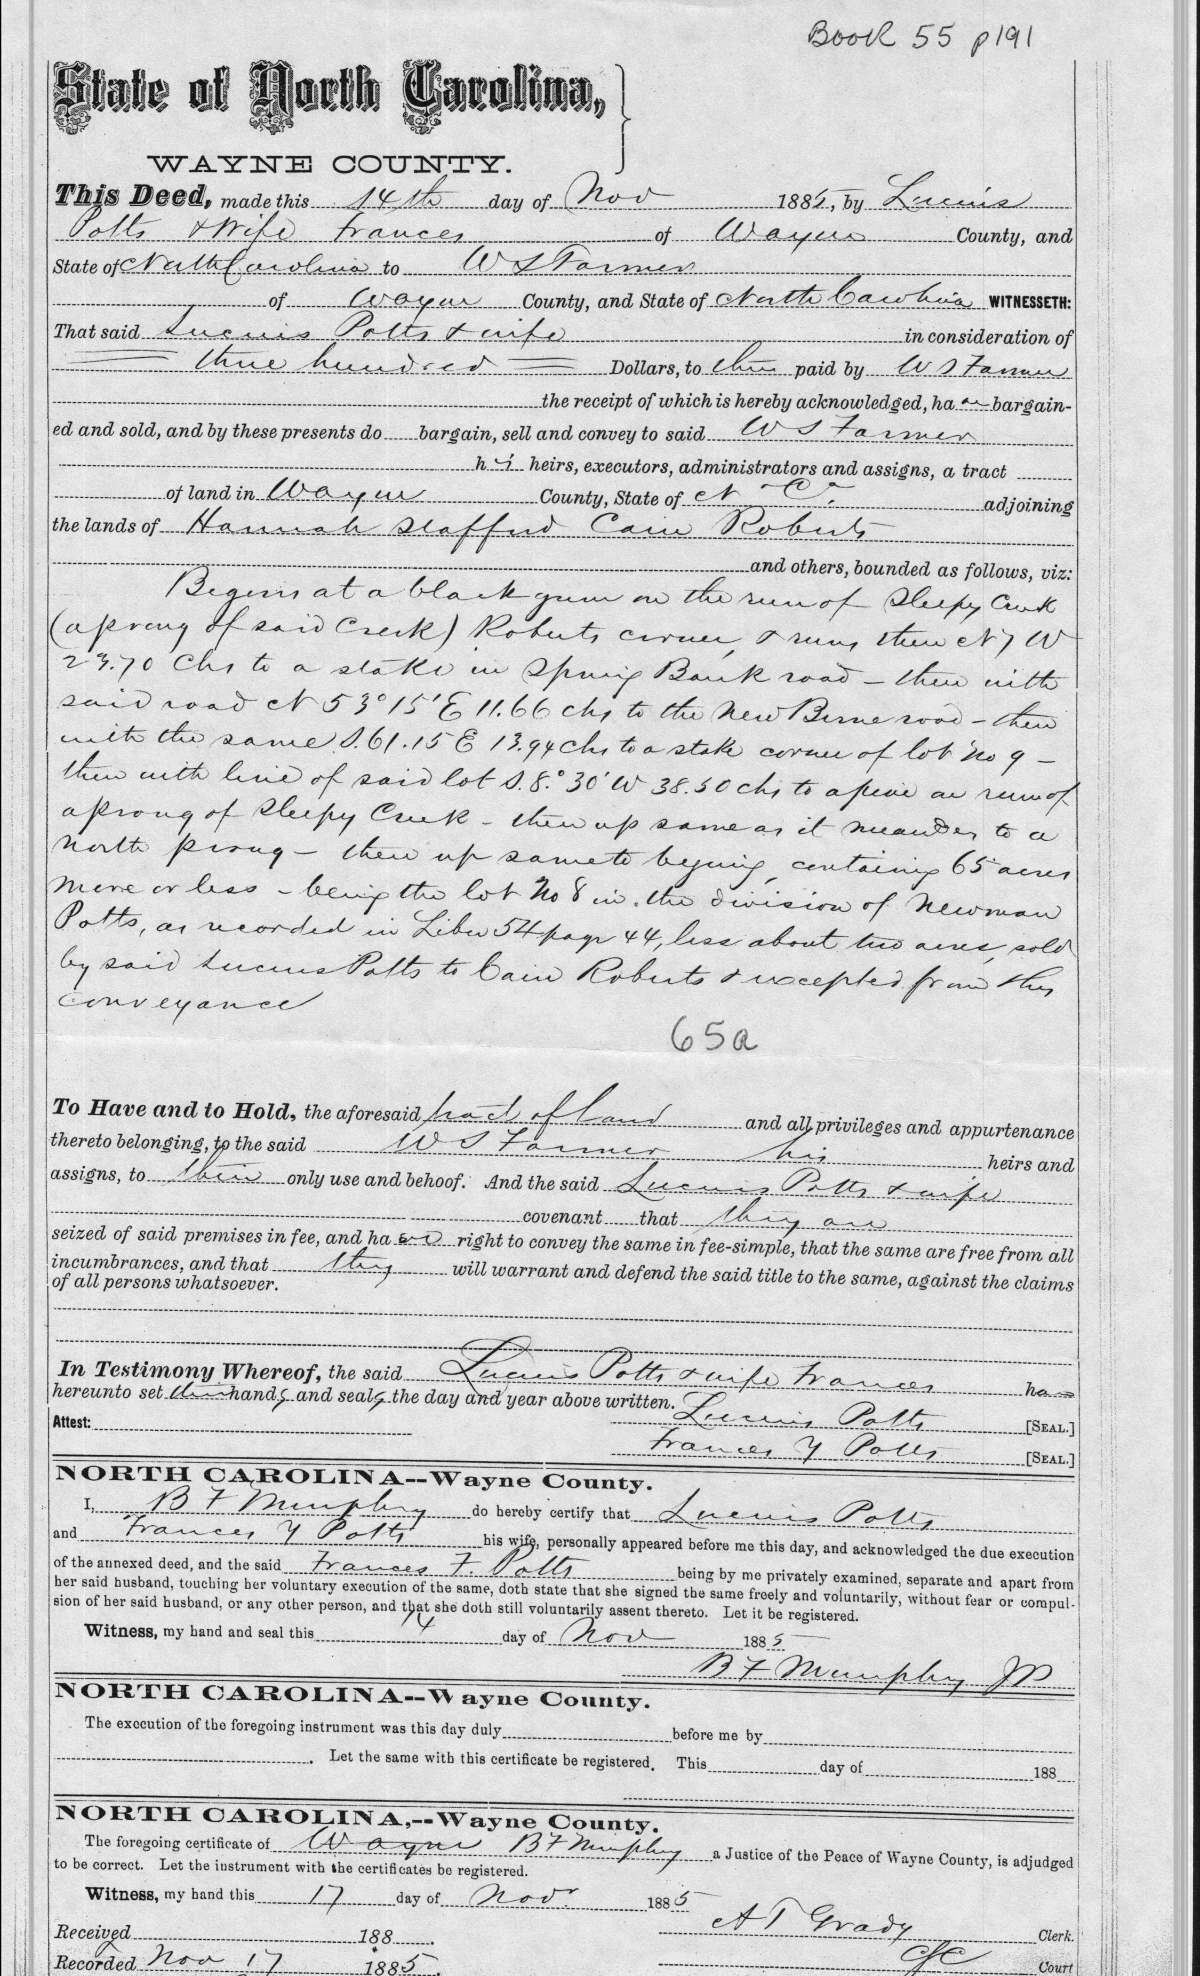 Book 55 p191
State of North Carolina,
WAYNE COUNTY.
This Deed, made this 14th day of Nov 1885, by Lucius
Potts & Wife Frances of Wayne County, and
State of North Carolina to W S Farmer
of Wayne County, and State of North Carolina WITNESSETH:
That said Lucius Potts & wife in consideration of
three hundred Dollars, to them paid by W S Farmer
the receipt of which is hereby acknowledged, ha ve bargain-
ed and sold, and by these presents do bargain, sell and convey to said W S Farmer
h is heirs, executors, administrators and assigns, a tract
of land in Wayne County, State of N. C. adjoining
the lands of Hannah Stafford Cain Roberts
and others, bounded as follows, viz:
Begins at a black gum on the run of Sleepy Creek
(a prong of said Creek) Roberts corner, & runs then N 7 W
23.70 Chs to a stake in Spring Bank road – then with
said road N 53° 15' E 11.66 chs to the New Berne road – then
with the same S. 61. 15 E 13.94 chs to a stake corner of lot No 9 –
then with line of said lot S. 8.° 30' W 38.50 chs to a pine on run of
a prong of Sleepy Creek – then up same as it meanders to a
north prong – then up same to begining, containing 65 acres
more or less – being the lot No 8 in the division of Newman
Potts, as recorded in Liber 54 page 44, less about two acres, sold
by said Lucius Potts to Cain Roberts & excepted from this
conveyance
65a
To Have and to Hold, the aforesaid tract of land and all privileges and appurtenance
thereto belonging, to the said W S Farmer his heirs and
assigns, to their only use and behoof. And the said Lucius Potts & wife
covenant that they are
seized of said premises in fee, and ha ve right to convey the same in fee-simple, that the same are free from all
incumbrances, and that they will warrant and defend the said title to the same, against the claims
of all persons whatsoever.
In Testimony Whereof, the said Lucius Potts & wife Frances ha ve
hereunto set their hands and seals, the day and year above written.
Lucius Potts [SEAL.]
Attest:
Frances Y Potts [SEAL.]
NORTH CAROLINA--Wayne County.
I, B F Murphy do hereby certify that Lucius Potts
and Frances Y Potts his wife, personally appeared before me this day, and acknowledged the due execution
of the annexed deed, and the said Frances F. Potts being by me privately examined, separate and apart from
her said husband, touching her voluntary execution of the same, doth state that she signed the same freely and voluntarily, without fear or compul-
sion of her said husband, or any other person, and that she doth still voluntarily assent thereto. Let it be registered.
Witness, my hand and seal this 14 day of Nov 1885
B F Murphy JP
NORTH CAROLINA--Wayne County.
The execution of the foregoing instrument was this day duly before me by
. Let the same with this certificate be registered. This day of 188
NORTH CAROLINA,--Wayne County.
The foregoing certificate of Wayne B F Murphy a Justice of the Peace of Wayne County, is adjudged
to be correct. Let the instrument with the certificates be registered.
Witness, my hand this 17 day of Nov. 1885
A T Grady Clerk.
Received 188 .
CSC Court
Recorded Nov 17 1885.